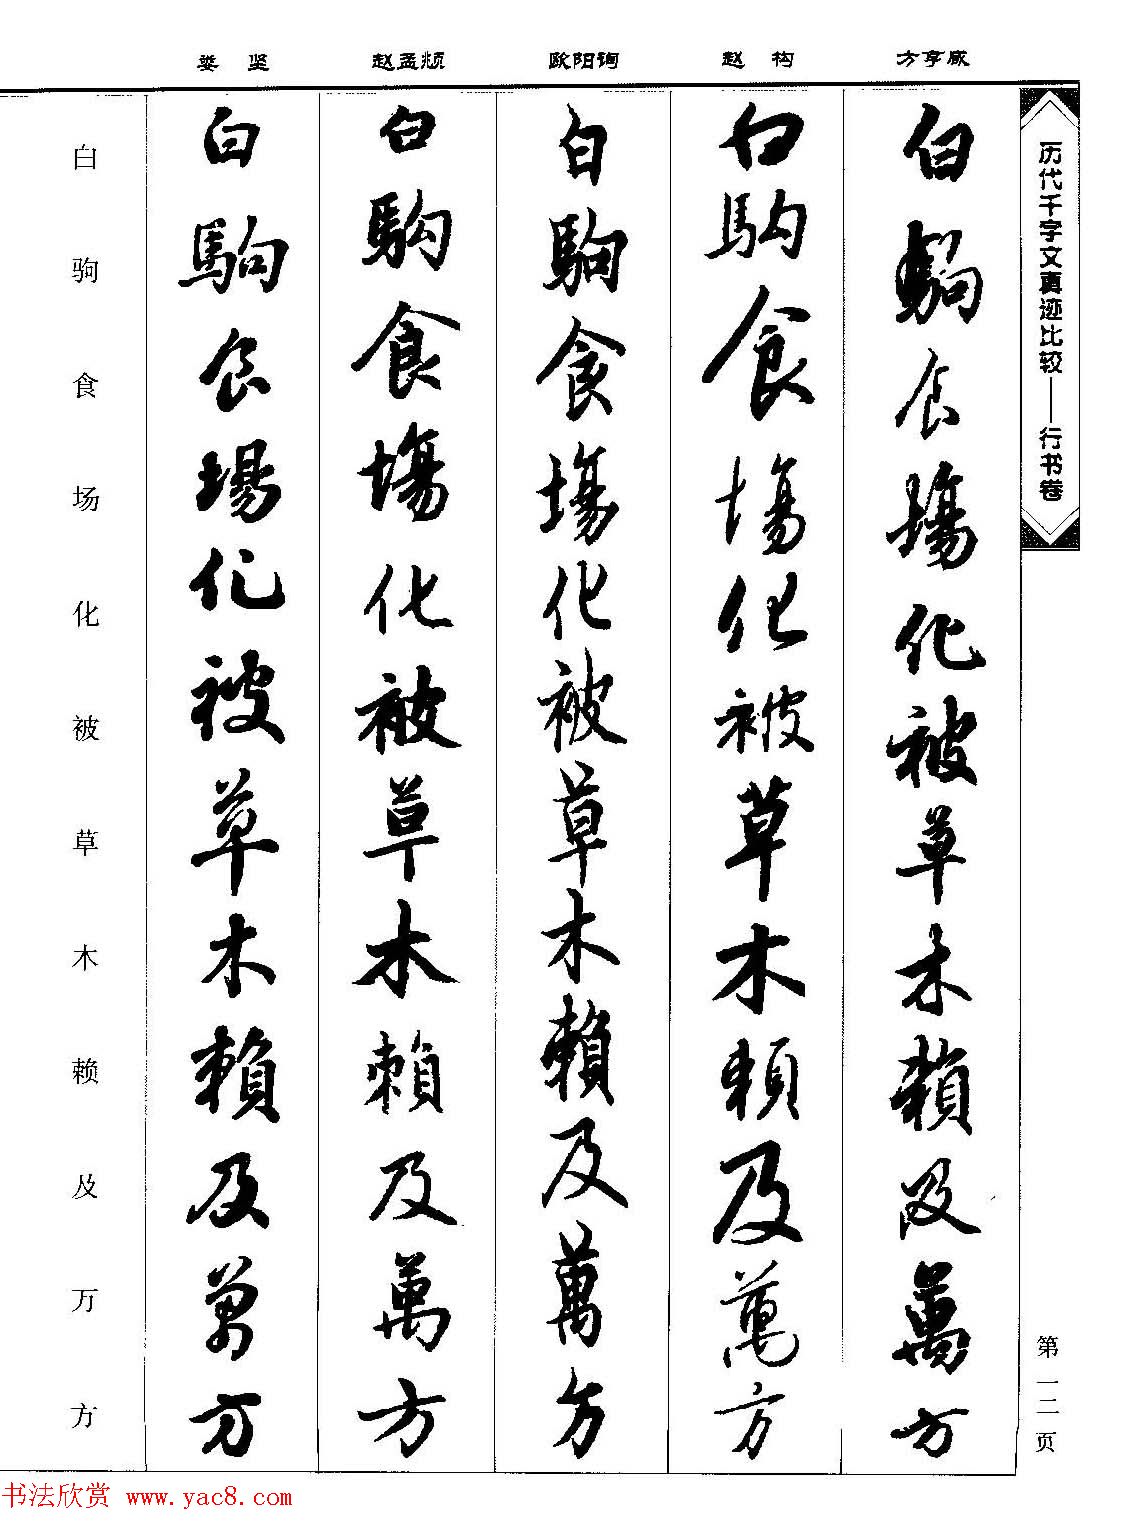 娄 坚
赵孟頫
欧阳询
赵 构
方亨咸
历代千字文真迹比较——行书卷
白駒食場化被草木賴及萬方
白駒食場化被草木賴及萬方
白駒食場化被草木賴及萬方
白駒食場化被草木賴及萬方
白駒食場化被草木賴及萬方
白驹食场化被草木赖及万方
第一二页
书法欣赏 www.yac8.com